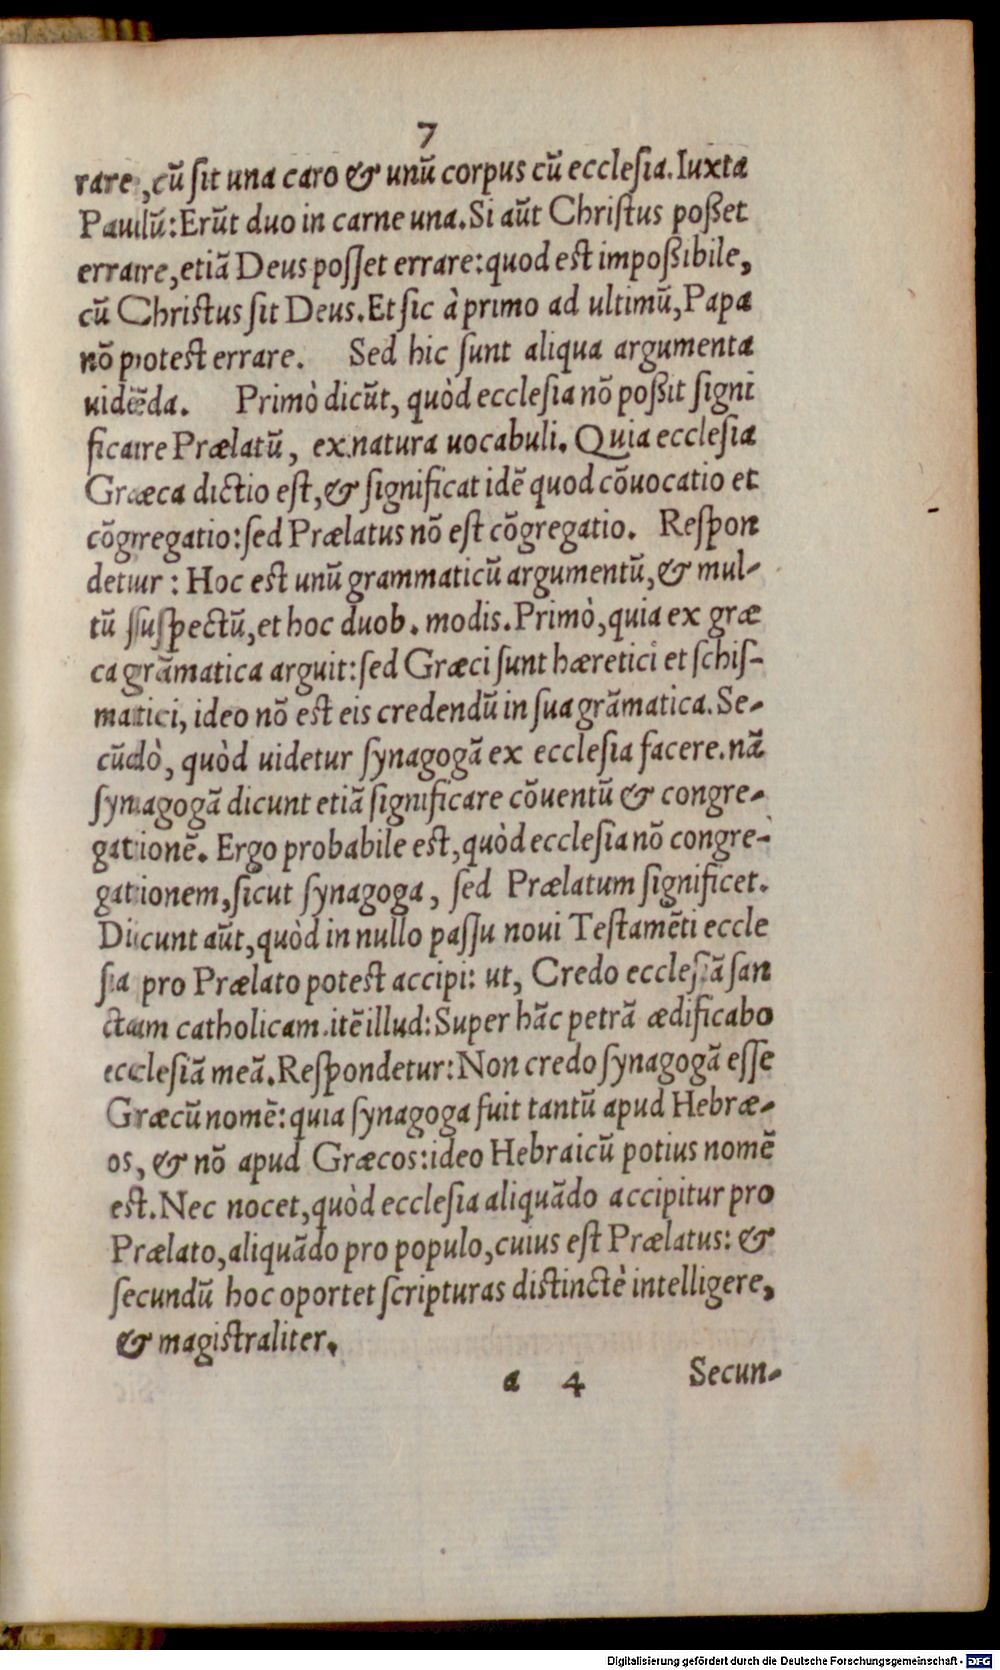 7
rare, cũ ſit una caro & unũ corpus cũ eccleſia. Iuxta
Paulũ: Erũt duo in carne una. Si aũt Chriſtus poßet
errare, etiã Deus poſſet errare: quod eſt impoßibile,
cũ Chriſtus ſit Deus. Et ſic à primo ad ultimũ, Papa
nõ poteſt errare. Sed hic ſunt aliqua argumenta
uidẽda. Primò dicũt, quòd eccleſia nõ poßit ſigni
ficare Prælatũ, ex natura uocabuli. Quia eccleſia
Græca dictio eſt, & ſignificat idẽ quod cõuocatio et
cõgregatio: ſed Prælatus nõ eſt cõgregatio. Reſpon
detur: Hoc est unũ grammaticũ argumentũ, & mul-
tũ ſuſpectũ, et hoc duob. modis. Primò, quia ex græ
ca grãmatica arguit: ſed Græci ſunt hæretici et ſchiſ-
matici, ideo nõ eſt eis credendũ in ſua grãmatica. Se-
cũdò, quòd uidetur ſynagogã ex eccleſia facere. nã
ſynagogã dicunt etiã ſignificare cõuentũ & congre-
gationẽ. Ergo probabile eſt, quòd eccleſia nõ congre-
gationem, ſicut ſynagoga, ſed Prælatum ſignificet.
Dicunt aũt, quòd in nullo paſſu noui Teſtamẽti eccle
ſia pro Prælato poteſt accipi: ut, Credo eccleſiã ſan
ctam catholicam. itẽ illud: Super hãc petrã ædificabo
eccleſiã meã. Reſpondetur: Non credo ſynagogã eſſe
Græcũ nomẽ: quia ſynagoga fuit tantũ apud Hebræ-
os, & nõ apud Græcos: ideo Hebraicũ potius nomẽ
eſt. Nec nocet, quòd eccleſia aliquãdo accipitur pro
Prælato, aliquãdo pro populo, cuius eſt Prælatus: &
ſecundũ hoc oportet ſcripturas diſtinctè intelligere,
& magiſtraliter.
a 4 Secun-
Digitalisierung gefördert durch die Deutsche Forschungsgemeinschaft - DFG